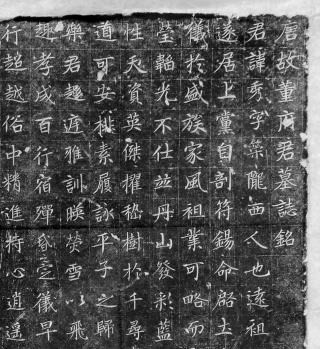 唐故董府君墓誌銘
君諱秀字榮隴西人也遠祖
遂居上黨自剖符錫命啟土
儀於盛族家風祖業可略而
瑩韜光不仕並丹山發彩藍
性天資英傑擢秘樹於千尋
道可安排素履詠平子之歸
樂君趨遊雅訓暎熒雪以飛
趣孝成百行宿殫昏定儀早
行超越俗中精進將心逍遥